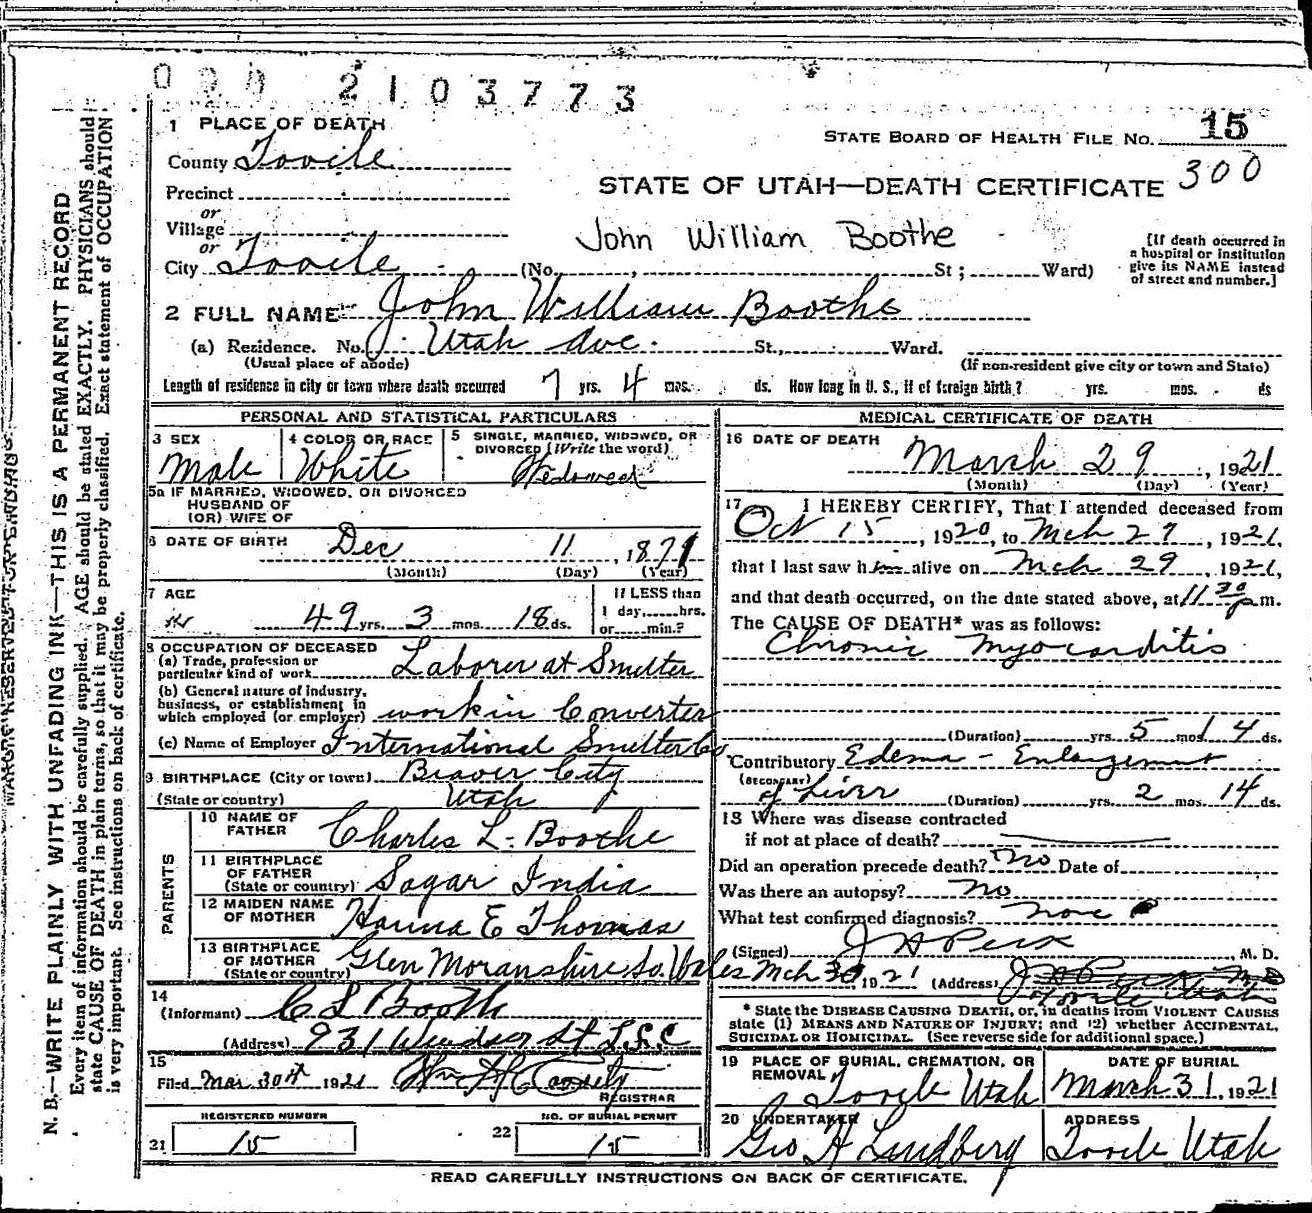 2103773
1 PLACE OF DEATH
STATE BOARD OF HEALTH FILE NO. 15
County Tooele
300
Precinct
STATE OF UTAH—DEATH CERTIFICATE
or
Village
John William Boothe
or
City Tooele (No. , St; Ward)
[If death occurred in
a hospital or institution
give its NAME instead
of street and number.]
2 FULL NAME John William Boothe
(a) Residence. No. Utah Ave. St., Ward.
(Usual place of abode) (If non-resident give city or town and State)
Length of residence in city or town where death occurred 7 yrs. 4 mos. ds. How long in U. S., if of foreign birth? yrs. mos. ds
PERSONAL AND STATISTICAL PARTICULARS
3 SEX
Male
4 COLOR OR RACE
White
5 SINGLE, MARRIED, WIDOWED, OR
DIVORCED (Write the word)
Widowed
5a IF MARRIED, WIDOWED, OR DIVORCED
HUSBAND OF
(OR) WIFE OF
6 DATE OF BIRTH Dec 11, 1871
(Month) (Day) (Year)
7 AGE
49 yrs. 3 mos. 18 ds.
If LESS than
1 day, hrs.
or min.?
8 OCCUPATION OF DECEASED
(a) Trade, profession or
particular kind of work Laborer at Smelter
(b) General nature of industry,
business, or establishment in
which employed (or employer) work in Converter
(c) Name of Employer International Smelter Co
9 BIRTHPLACE (City or town) Beaver City
(State or country) Utah
PARENTS
10 NAME OF
FATHER Charles L. Boothe
11 BIRTHPLACE
OF FATHER
(State or country) Sagar India
12 MAIDEN NAME
OF MOTHER Hanna E Thomas
13 BIRTHPLACE
OF MOTHER
(State or country) Glen Moranshire So. Wales
14
(Informant) C L Booth
(Address) 931 Windsor St L.S.C
15
Filed Mar 30st 1921 Wm H
REGISTRAR
REGISTERED NUMBER
21 15
NO. OF BURIAL PERMIT
22 15
MEDICAL CERTIFICATE OF DEATH
16 DATE OF DEATH
March 29, 1921
(Month) (Day) (Year)
17 I HEREBY CERTIFY, That I attended deceased from
Oct 15, 1920, to Mch 27, 1921,
that I last saw him alive on Mch 29, 1921,
and that death occurred, on the date stated above, at 11 30 p m.
The CAUSE OF DEATH* was as follows:
Chronic Myocarditis
(Duration) yrs. 5 mos 14 ds.
Contributory Edema - Enlargement
(SECONDARY)
of Liver (Duration) yrs. 2 mos. 14 ds.
18 Where was disease contracted
if not at place of death?
Did an operation precede death? no Date of
Was there an autopsy? no
What test confirmed diagnosis? none
(Signed) J H Peck, M. D.
Mch 30, 1921 (Address) Tooele Utah
* State the DISEASE CAUSING DEATH, or, in deaths from VIOLENT CAUSES
state (1) MEANS AND NATURE OF INJURY; and (2) whether ACCIDENTAL,
SUICIDAL OR HOMICIDAL. (See reverse side for additional space.)
19 PLACE OF BURIAL, CREMATION, OR
REMOVAL
Tooele Utah
DATE OF BURIAL
March 31, 1921
20 UNDERTAKER
Geo H Lundberg
ADDRESS
Tooele Utah
READ CAREFULLY INSTRUCTIONS ON BACK OF CERTIFICATE.
MARGIN RESERVED FOR BINDING
N. B.—WRITE PLAINLY WITH UNFADING INK—THIS IS A PERMANENT RECORD
Every item of information should be carefully supplied. AGE should be stated EXACTLY. PHYSICIANS should
state CAUSE OF DEATH in plain terms, so that it may be properly classified. Exact statement of OCCUPATION
is very important. See instructions on back of certificate.